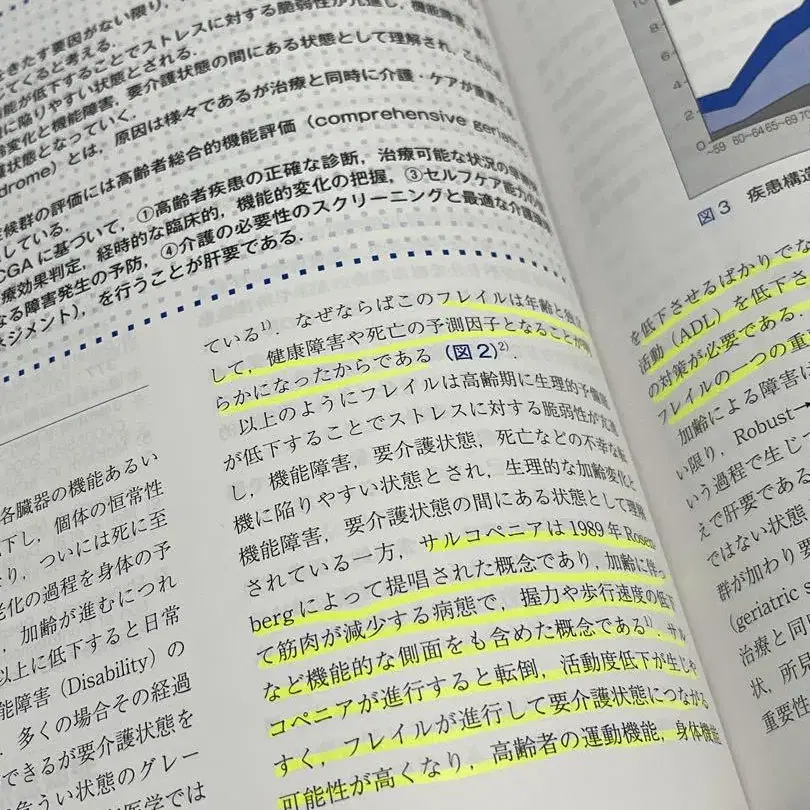 をきたす要因がない限り，
てくると考える．
機能が低下することでストレスに対する脆弱性が亢進し，機能障害，
に陥りやすい状態とされる．
変化と機能障害，要介護状態の間にある状態として理解され，これは
護状態となっていく．
drome）とは，原因は様々であるが治療と同時に介護・ケアが重要で
候群の評価には高齢者総合的機能評価（comprehensive geriatric
している．
CGAに基づいて，①高齢者疾患の正確な診断，治療可能な状況の
療効果判定，経時的な臨床的，機能的変化の把握，③セルフケア能力の
なる障害発生の予防，④介護の必要性のスクリーニングと最適な介護
ネジメント），を行うことが肝要である．
各臓器の機能あるい
下し，個体の恒常性
り，ついには死に至
老化の過程を身体の予
，加齢が進むにつれ
以上に低下すると日常
能障害（Disability）の
．多くの場合その経過
できるが要介護状態を
危うい状態のグレー
医学では
ている1)．なぜならばこのフレイルは年齢と独
して，健康障害や死亡の予測因子となることが明
らかになったからである（図2）2)．
以上のようにフレイルは高齢期に生理的予備
が低下することでストレスに対する脆弱性が亢進
し，機能障害，要介護状態，死亡などの不幸な転
機に陥りやすい状態とされ，生理的な加齢変化と
機能障害，要介護状態の間にある状態として理解
されている一方，サルコペニアは1989年Rosen-
bergによって提唱された概念であり，加齢に伴っ
て筋肉が減少する病態で，握力や歩行速度の低下
など機能的な側面をも含めた概念である1)．サル
コペニアが進行すると転倒，活動度低下が生じや
すく，フレイルが進行して要介護状態につながる
可能性が高くなり，高齢者の運動機能，身体機能
10
8
6
4
2
0
~59 60~64 65~69 70
図3 疾患構造
を低下させるばかりでな
活動（ADL）を低下さ
の対策が必要である．
フレイルの一つの重
加齢による障害に
い限り，Robust→
いう過程で生じ
えで肝要である
ではない状態
群が加わり要
（geriatric s
治療と同
状，所見
重要性